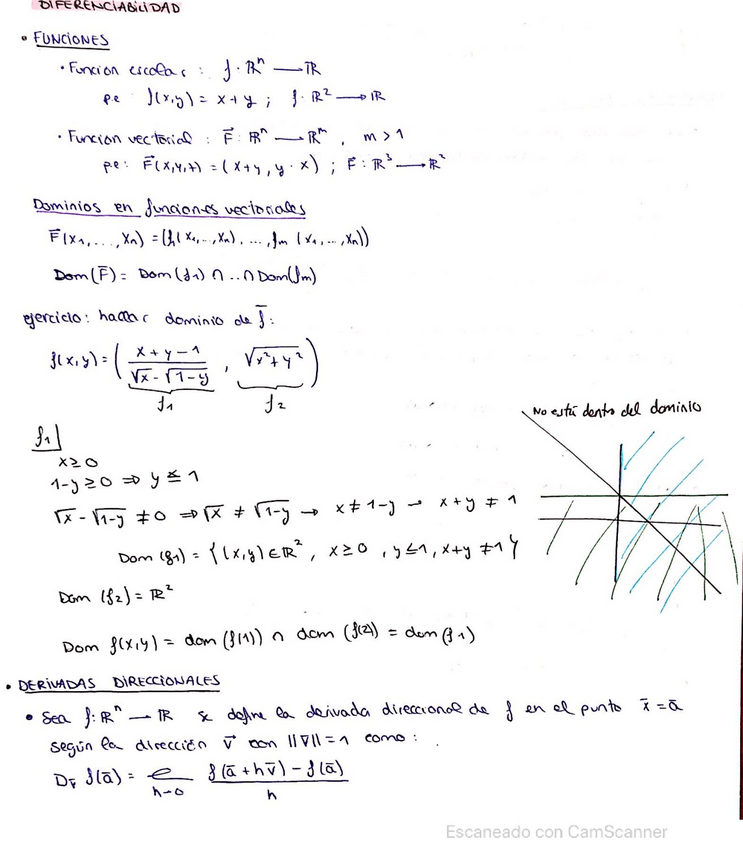 DIFERENCIABILIDAD
• FUNCIONES
• Función escalar : f: ℝⁿ → ℝ
p.e f(x,y) = x + y ; f: ℝ² → ℝ
• Función vectorial : F⃗: ℝⁿ → ℝᵐ , m > 1
pe: F⃗(x,y,z) = (x+y, y·x) ; F⃗: ℝ³ → ℝ²
Dominios en funciones vectoriales
F̄(x₁,..., xₙ) = (f₁(x₁,..,xₙ), ..., fₘ(x₁,...,xₙ))
Dom(F̄) = Dom(f₁) ∩ .. ∩ Dom(fₘ)
ejercicio: hallar dominio de f̄:
f(x,y) = ( (x+y-1)/(√x - √(1-y)) , √(x²+y²) )
f₁ f₂
No está dento del dominio
f₁
x ≥ 0
1-y ≥ 0 ⇒ y ≤ 1
√x - √(1-y) ≠ 0 ⇒ √x ≠ √(1-y) → x ≠ 1-y → x+y ≠ 1
Dom (f₁) = {(x,y) ∈ ℝ², x ≥ 0 , y ≤ 1, x+y ≠ 1}
Dom (f₂) = ℝ²
Dom f(x,y) = dom (f(1)) ∩ dom (f(2)) = dom (f1)
• DERIVADAS DIRECCIONALES
• Sea f: ℝⁿ → ℝ se define la derivada direccional de f en el punto x̄ = ā
según la dirección v⃗ con ||v̄|| = 1 como :
D_v̄ f(ā) = ℓ h→0 (f(ā + hv̄) - f(ā))/h
Escaneado con CamScanner